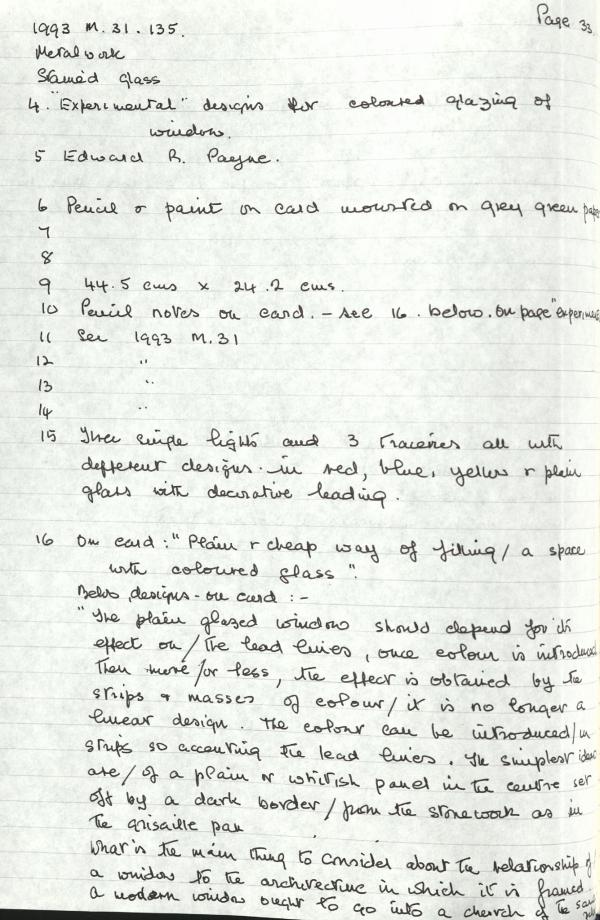 Page 33
1993 M.31.135.
Metalwork
Stained glass
4. "Experimental" designs for coloured glazing of
window.
5 Edward R. Payne.
6 Pencil & paint on card mounted on grey green paper
7
8
9 44.5 cms x 24.2 cms.
10 Pencil notes on card. - see 16. below. On page "experiments
11 See 1993 M.31
12 "
13 "
14 "
15 Three single lights and 3 traceries all with
different designs. in red, blue, yellow & plain
glass with decorative leading.
16 On card: "Plain & cheap way of filling / a space
with coloured glass".
Below, designs - on card :-
"The plain glazed window should depend for its
effect on / the lead lines, once colour is introduced
then more / or less, the effect is obtained by the
strips & masses of colour / it is no longer a
linear design. The colour can be introduced / in
strips so accenting the lead lines. The simplest ideas
are / of a plain or whitish panel in the centre set
off by a dark border / from the stonework as in
the grisaille pan
What is the main thing to consider about the relationship of
a window to the architecture in which it is framed.
a modern window ought to go into a church of the same